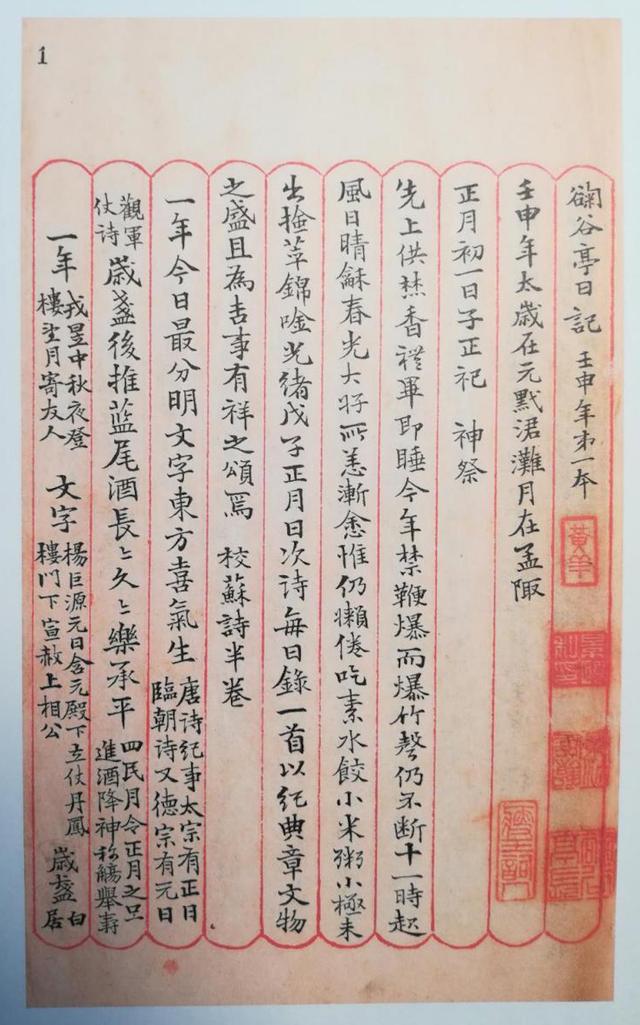 1
鞠谷亭日記 壬申年第一本
黃羊
壬申年太歲在元默涒灘月在孟陬
正月初一日子正祀 神祭
先上供焚香禮畢即睡今年禁鞭爆而爆竹聲仍不斷十一時起
風日晴龢春光大好所恙漸愈惟仍懶倦吃素水餃小米粥小極未
出撿莘錦唫光緒戊子正月日次詩每日錄一首以紀典章文物
之盛且為吉事有祥之頌焉 校蘇詩半卷
一年今日最分明文字東方喜氣生 唐詩紀事太宗有正日
臨朝詩又德宗有元日
觀軍
仗詩 歲盞後推蓝尾酒長〻久〻樂承平 四民月令正月之旦
進酒降神称觴舉壽
一年 戎昱中秋夜登
樓望月寄友人 文字 楊巨源元日含元殿下立仗丹鳳
樓門下宣赦上相公 歲盞 白
居